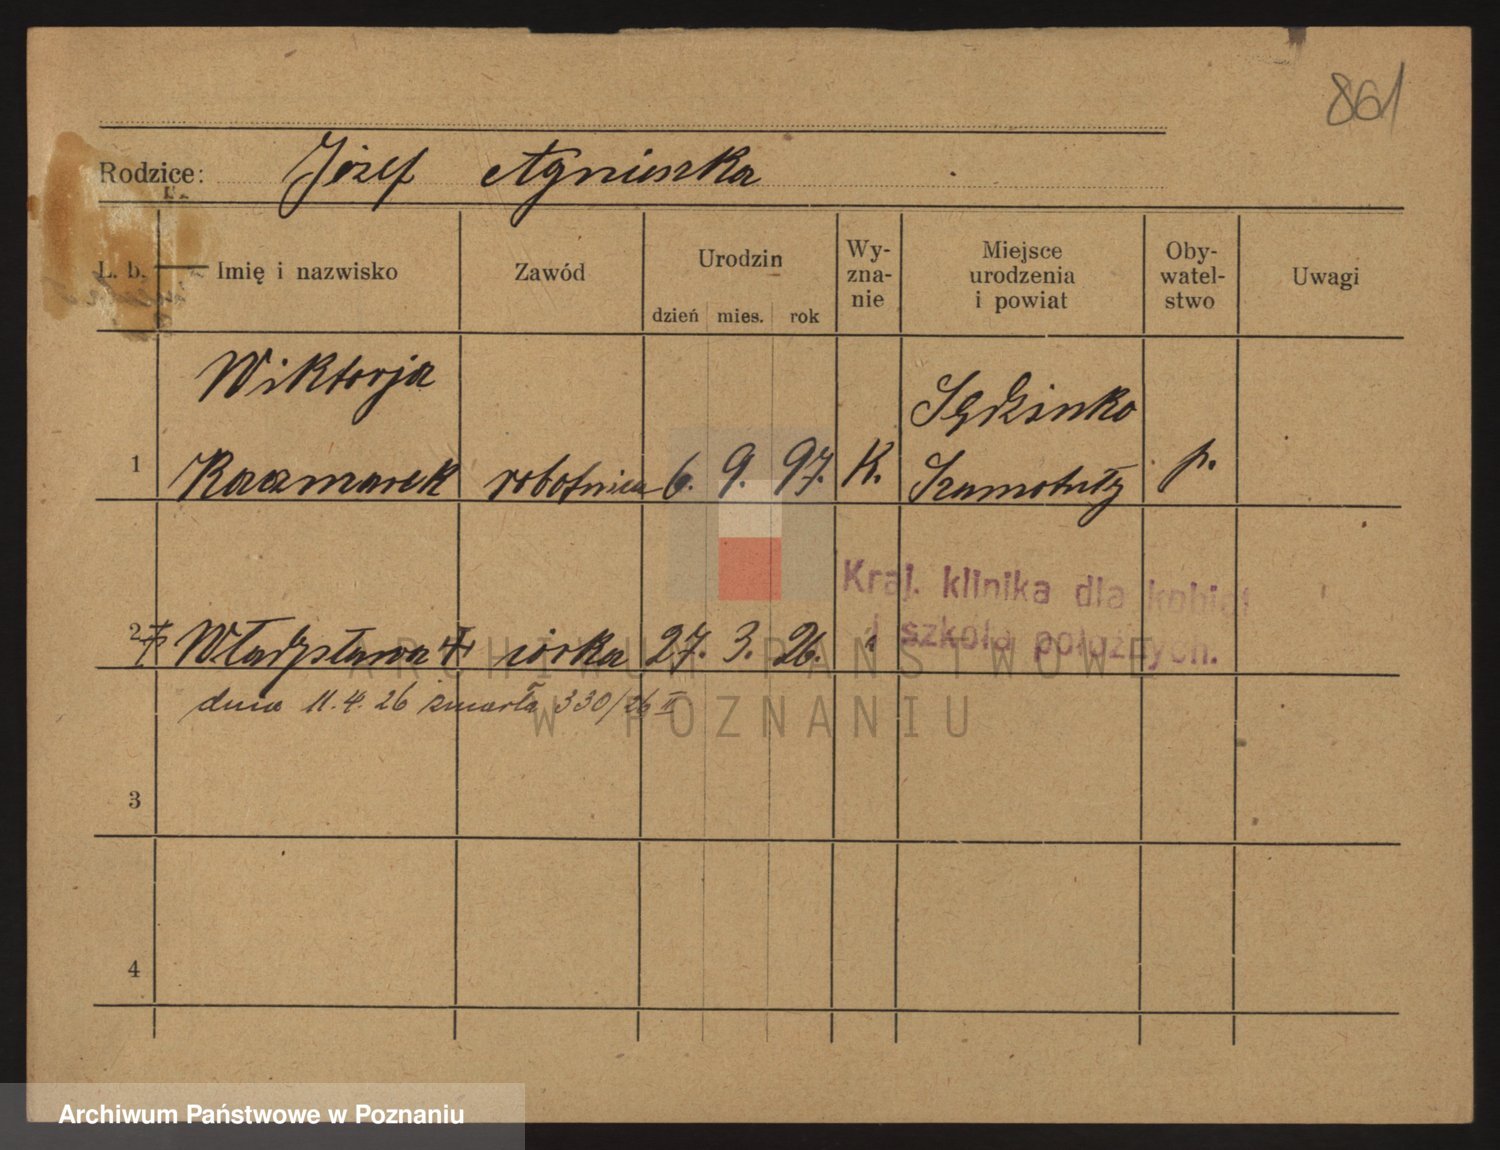 861
Rodzice: Józef Agnieszka
L. b. Imię i nazwisko Zawód Urodzin Wy- Miejsce Oby- Uwagi
zna- urodzenia watel-
dzień mies. rok nie i powiat stwo
Wiktorja Sędzinko
1 Kaczmarek robotnica 6. 9. 97. K. Szamotuły p.
Kraj. klinika dla kobiet
i szkoła położnych.
2 ‡ Władysława ‡ córka 27. 3. 26.
ARCHIWUM PAŃSTWOWE
dnia 11.4.26 zmarła 330/26 II
W POZNANIU
3
4
Archiwum Państwowe w Poznaniu